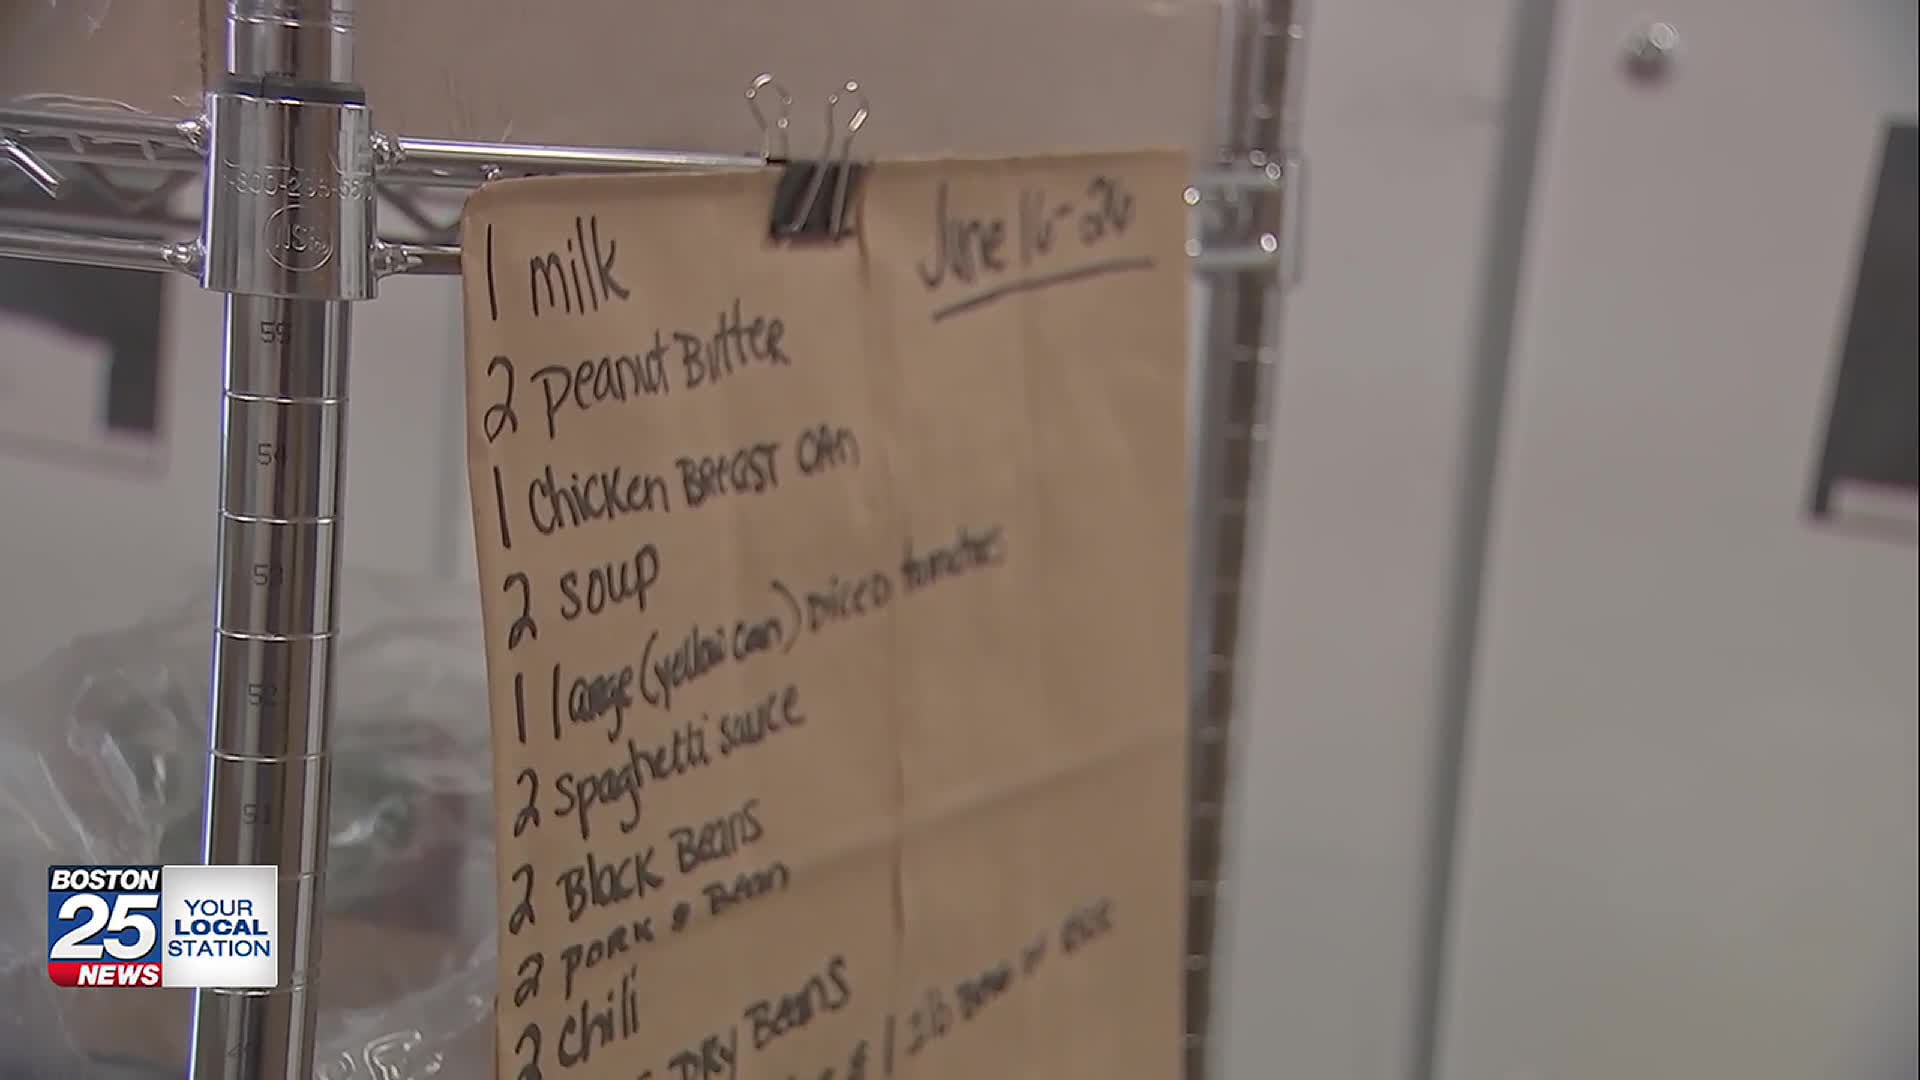 June 16-26
1 milk
2 Peanut Butter
1 Chicken Breast can
2 soup
1 large (yellow can) Diced tomatoes
2 spaghetti sauce
2 Black Beans
2 Pork & Bean
2 chili
Dry Beans
1 2lb
NSF
55
54
53
52
51
BOSTON
25
NEWS
YOUR
LOCAL
STATION